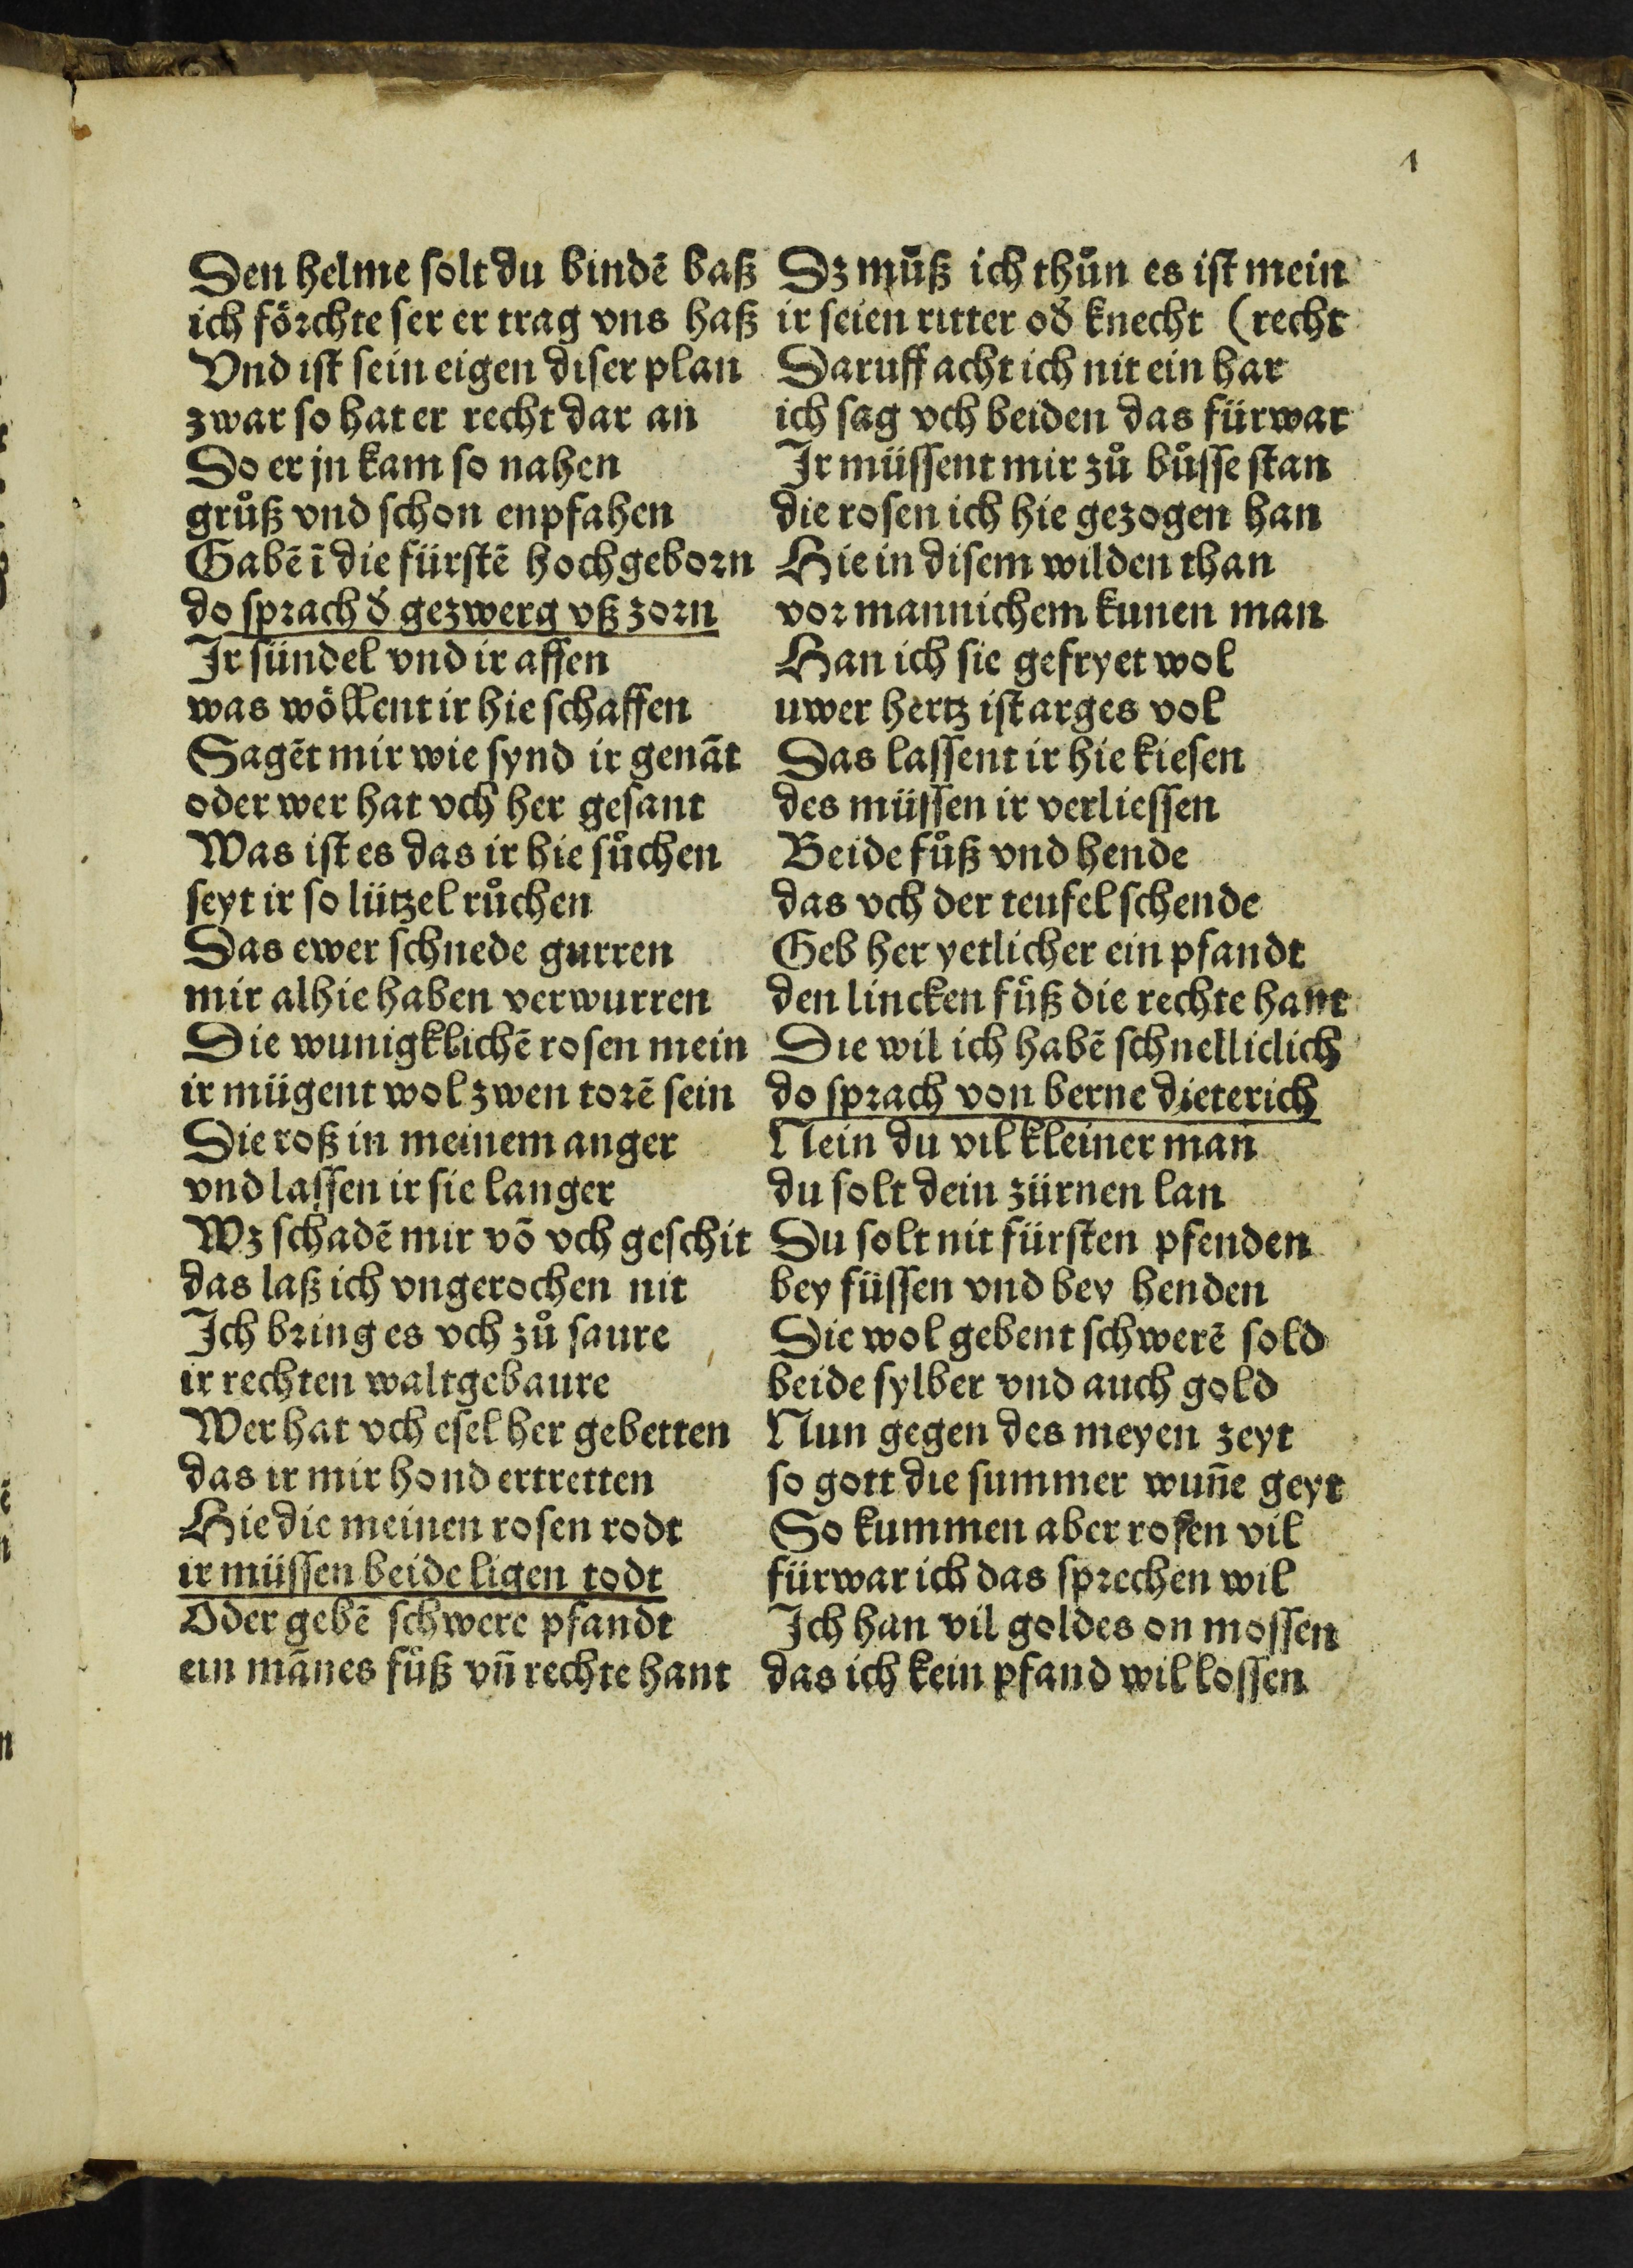 1
Den helme solt du bindē baß
ich förchte ser er trag vns haß
Vnd ist sein eigen diser plan
zwar so hat er recht dar an
Do er jn kam so nahen
gruͦß vnd schon enpfahen
Gabē ī die fürstē hochgeborn
do sprach d̄ gezwerg vß zorn
Ir sündel vnd ir affen
was wöllent ir hie schaffen
Sagēt mir wie synd ir genāt
oder wer hat vch her gesant
Was ist es das ir hie suͦchen
seyt ir so lützel ruͦchen
Das ewer schnede gurren
mir alhie haben verwurren
Die wunigklichē rosen mein
ir mügent wol zwen torē sein
Die roß in meinem anger
vnd lassen ir sie langer
Wz schadē mir vō vch geschit
das laß ich vngerochen nit
Ich bring es vch zuͦ saure
ir rechten waltgebaure
Wer hat vch esel her gebetten
das ir mir hond ertretten
Hie die meinen rosen rodt
ir müssen beide ligen todt
Oder gebē schwere pfandt
ein mānes fuͦß vn̄ rechte hant
Dz muͦß ich thuͦn es ist mein
ir seien ritter od̄ knecht (recht
Daruff acht ich nit ein har
ich sag vch beiden das fürwar
Ir müssent mir zuͦ buͦsse stan
die rosen ich hie gezogen han
Hie in disem wilden than
vor mannichem kunen man
Han ich sie gefryet wol
uwer hertz ist arges vol
Das lassent ir hie kiesen
des müssen ir verliessen
Beide fuͦß vnd hende
das vch der teufel schende
Geb her yetlicher ein pfandt
den lincken fuͦß die rechte hant
Die wil ich habē schnelliclich
do sprach von berne dieterich
Nein du vil kleiner man
du solt dein zürnen lan
Du solt nit fürsten pfenden
bey füssen vnd bey henden
Die wol gebent schwerē sold
beide sylber vnd auch gold
Nun gegen des meyen zeyt
so gott die summer wun̄e geyt
So kummen aber rosen vil
fürwar ich das sprechen wil
Ich han vil goldes on mossen
das ich kein pfand wil lossen